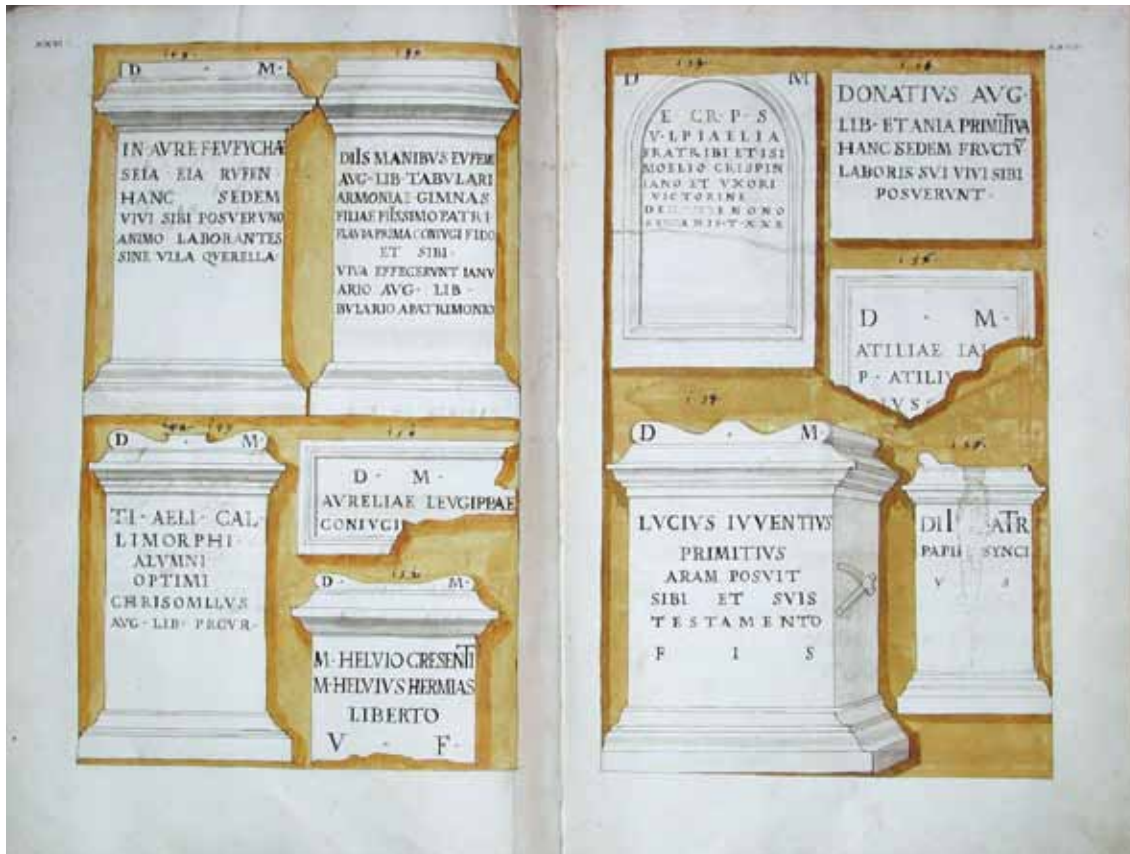 D · M ·
IN AVRE FEVFYCHÆ
SEIA EIA RVFEN ·
HANC SEDEM
VIVI SIBI POSVERVNO
ANIMO LABORANTES
SINE VLLA QVERELLA ·
DIIS MANIBVS EVFEMI
AVG · LIB · TABVLARI
ARMONIAE GIMNAS
FILIAE PIISSIMO PATRI
FLAVIA PRIMA CONIVGI FIDO
ET SIBI ·
VIVA EFFECERVNT IANV
ARIO AVG · LIB ·
BVLARIO A PATRIMONIO
D M ·
TI · AELI · CAL ·
LIMORPHI ·
ALVMNI ·
OPTIMI
CHRISOMLLVS
AVG · LIB · PRCVR ·
D · M ·
AVRELIAE LEVGIPPAE
CONIVGI
D · M ·
M · HELVIO CRESENTI
M · HELVIVS HERMIAS
LIBERTO
V F ·
D M
E CR · P · S
V · LPIAELIA
FRATRIBI ET ISI
MOELIO CRISPIN
IANO ET VXORI
VICTORINE
DONATIVS AVG ·
LIB · ET ANIA PRIMITIVA
HANC SEDEM FRVCTV
LABORIS SVI VIVI SIBI
POSVERVNT ·
D · M ·
ATILIAE
P · ATILIV
D · M ·
LVCIVS IVVENTIVS
PRIMITIVS
ARAM POSVIT
SIBI ET SVIS
TESTAMENTO
F I S
DII ATR
PAPII SYNCI
V S